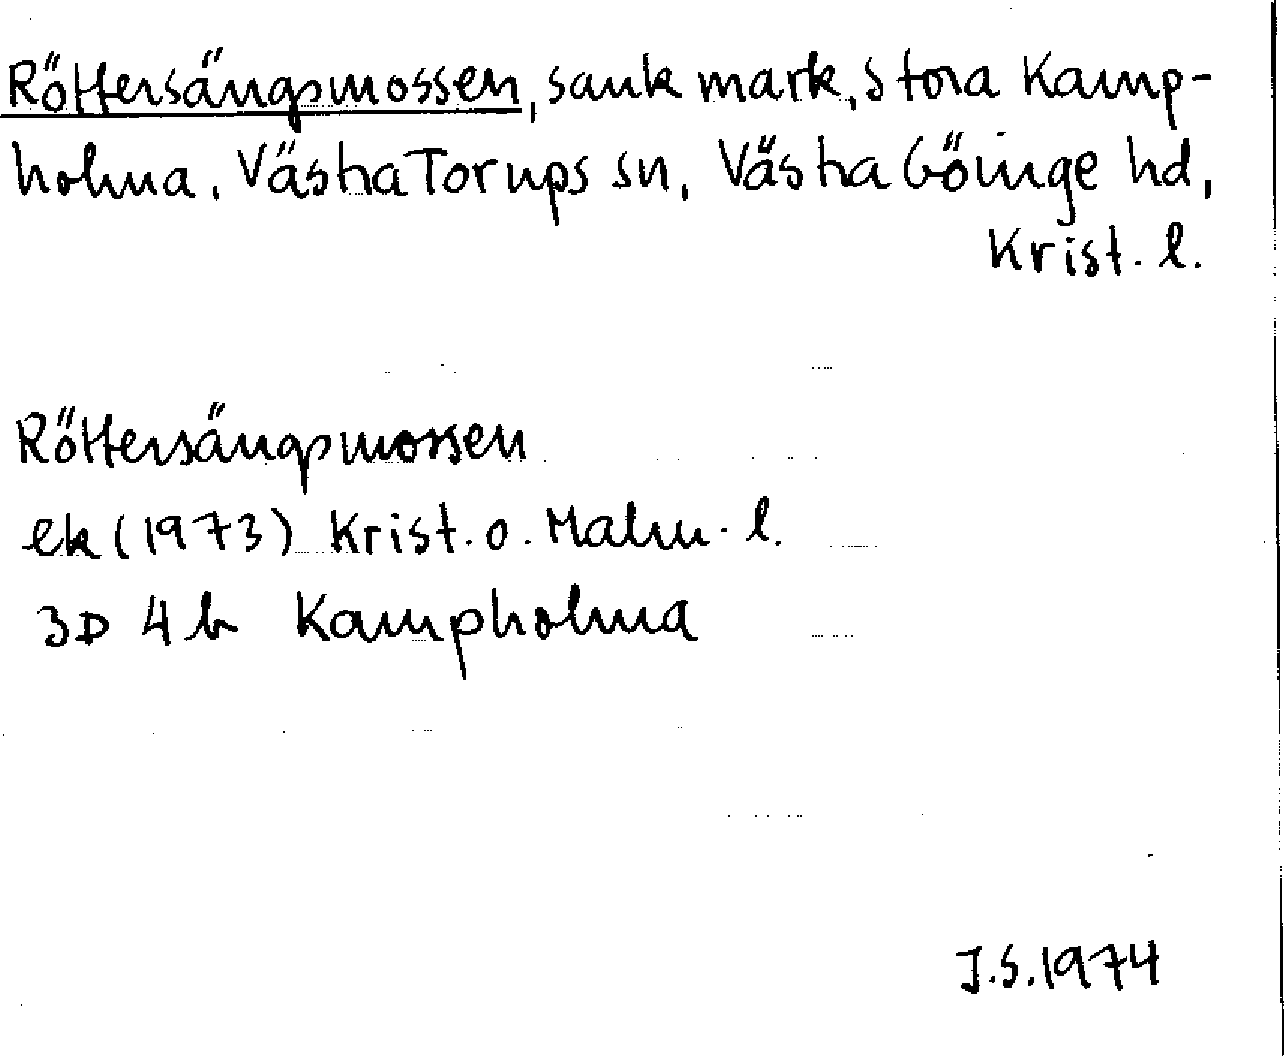 Röttersängsmossen, sank mark, Stora Kamp-
holma, Västra Torups sn, Västra Göinge hd,
Krist. l.
Röttersängsmossen
ek (1973) Krist. o. Malm. l.
3D 4b Kampholma
J.S. 1974